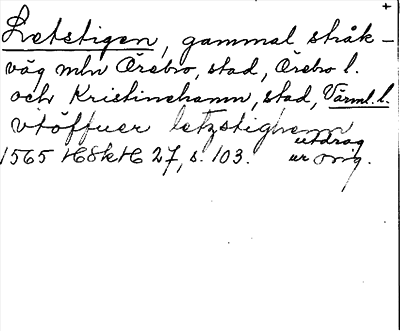 +
Letstigen, gammal stråk-
väg mln Örebro, stad, Örebro l.
och Kristinehamn, stad, Värml. l.
vtöffuer letzstighenn
1565 HSkH 27, s. 103. utdrag
ur orig.